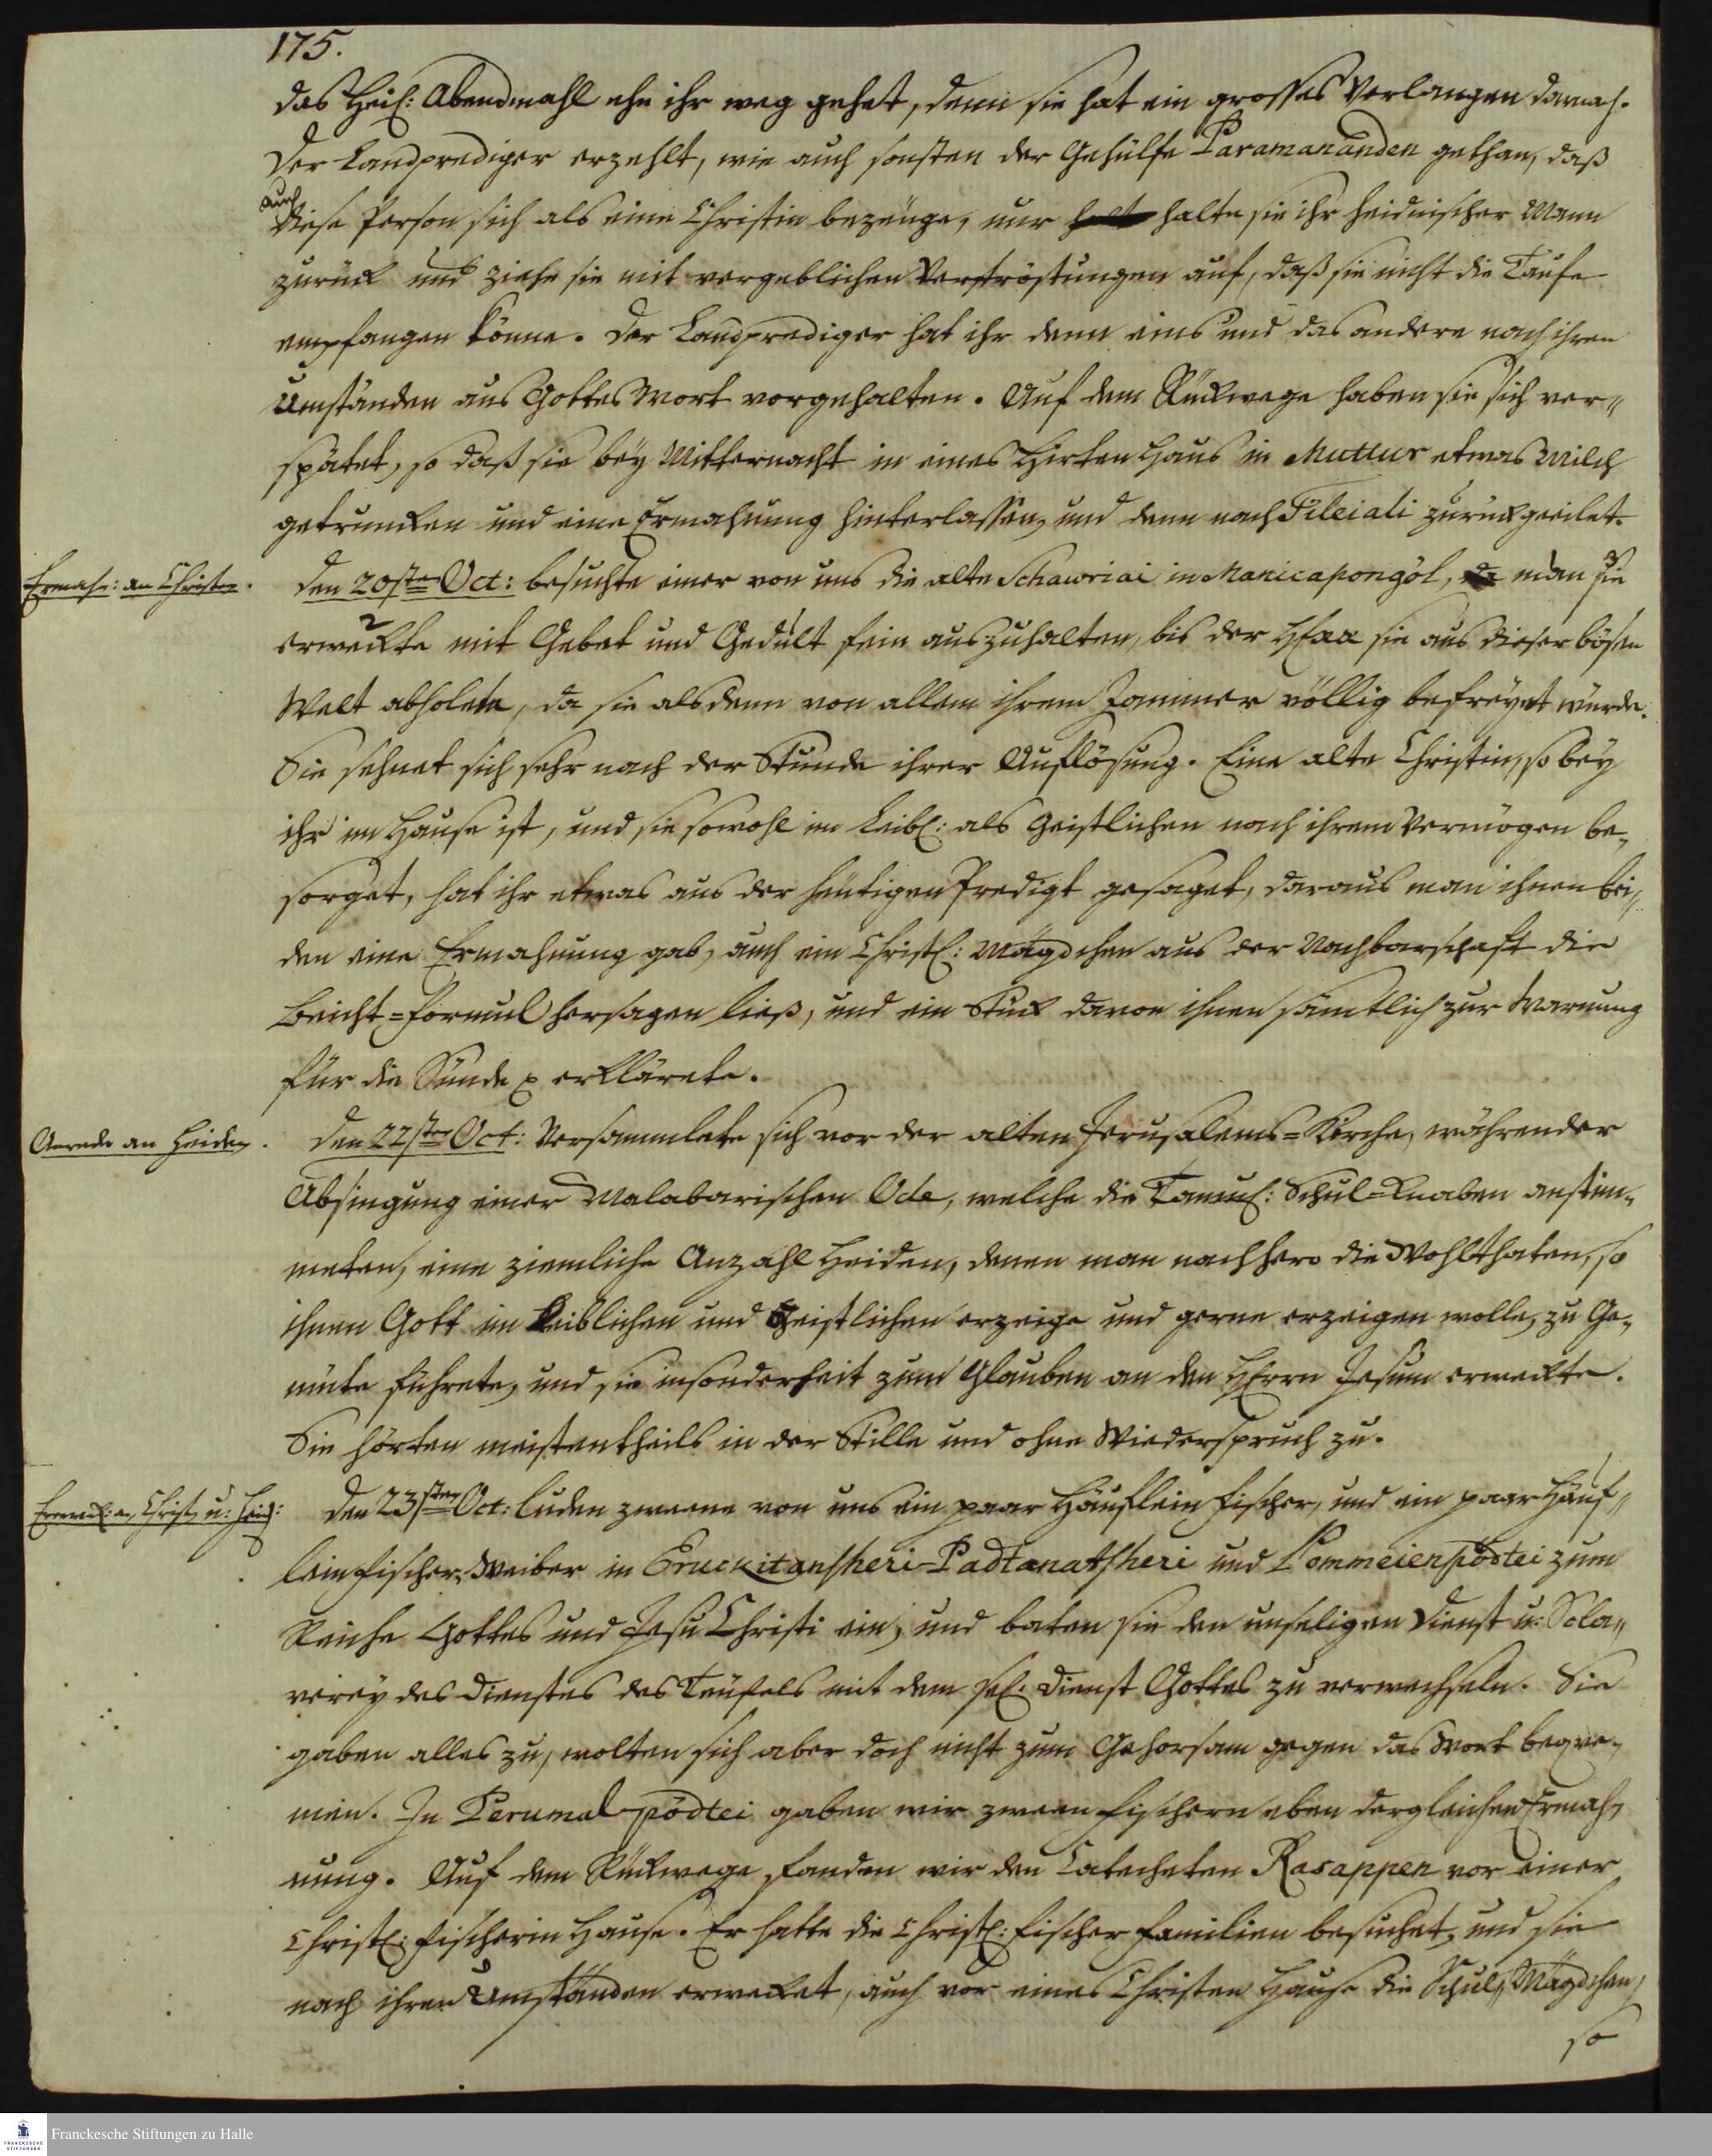 175.
das Heil: Abendmahl ehe ihr weg gehet, denn sie hat ein grosses Verlangen darnach.
Der Landprediger erzehlt, wie auch sonsten der Gehülfe Paramananden gethan, daß
auch
diese Person sich als eine Christin bezeuge, nur halte sie ihr heidnischer Mann
zurück und ziehe sie mit vergeblichen Vertröstungen auf, daß sie nicht die Taufe
empfangen könne. Der Landprediger hat ihr denn eins und das andere nach ihren
Umständen aus Gottes Wort vorgehalten. Auf dem Rückwege haben sie sich ver-
spätet, so daß sie bey Mitternacht in eines Hirten Haus in Muttur etwas Milch
getruncken und eine Ermahnung hinterlassen, und denn nach Tileiali zurückgeeilet.
Ermahn: an Christen.
den 20sten Oct: besuchte einer von uns die alte Schawriai in Manicapongöl, man sie
erweckte mit Gebet und Gedult fein auszuhalten, bis der HErr sie aus dieser bösen
Welt abholete, da sie alsdenn von allem ihrem Jammer völlig befreyet würde.
Sie sehnet sich sehr nach der Stunde ihrer Auflösung. Eine alte Christin, so bey
ihr im Hause ist, und sie sowohl im Leibl: als Geistlichen nach ihrem Vermögen be-
sorget, hat ihr etwas aus der heutigen Predigt gesaget, daraus man ihnen bei-
den eine Ermahnung gab, auch ein Christl: Mägdchen aus der Nachbarschaft die
Beicht-Formul hersagen ließ, und ein Stück davon ihnen sämtlich zur Warnung
für die Sünde erklärete.
Anrede an Heiden.
den 22sten Oct: Versammlete sich vor der alten Jerusalems-Kirche, währender
Absingung einer Malabarischen Ode, welche die Tamul: Schul-Knaben anstim-
meten, eine ziemliche Anzahl Heiden, denen man nachhero die Wohlthaten, so
ihnen Gott im Leiblichen und Geistlichen erzeige und gerne erzeigen wolle, zu Ge-
müte führete, und sie insonderheit zum Glauben an den HErrn Jesum erweckte.
Sie hörten meistentheils in der Stille und ohne Wiederspruch zu.
Erweck: an Christ, u: Heid:
den 23sten Oct: luden zweene von uns ein paar Häuflein Fischer, und ein paar Häuf-
lein Fischer-Weiber in Eruckitansheri-Padtanatsheri und Pommeienpödtei zum
Reiche Gottes und Jesu Christi ein, und baten sie den unseligen Dienst u: Scla-
verey des Dienstes des Teufels mit dem sel: Dienst Gottes zu verwechseln. Sie
gaben alles zu, wolten sich aber doch nicht zum Gehorsam gegen das Wort beqve-
men. In Perumal-pödtei gaben wir zween Fischern eben dergleichen Ermah-
nung. Auf dem Rückwege fanden wir den Catecheten Rasappen vor einer
Christl: Fischerin Hause. Er hatte die Christl: Fischer Familien besuchet, und sie
nach ihren Umständen erwecket, auch vor eines Christen Hause die Schul-Mägdchen,
so
Franckesche Stiftungen zu Halle
FRANCKESCHE STIFTUNGEN